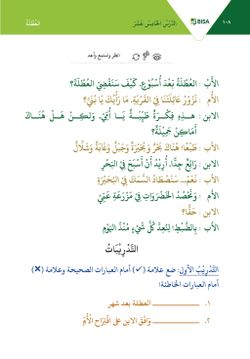 ١٠٨
BISA
الدَّرْسُ الْخَامِسَ عَشَرَ
العُطْلَةُ
انظر واستمع وأعد
الأَبُ : العُطْلَةُ بَعْدَ أُسْبُوعٍ، كَيْفَ سَنَقْضِي العُطْلَةَ؟
الأُم : نَزُورُ عَائِلَتَنَا فِي القَرْيَةِ، مَا رَأْيُكَ يَا بُنَيَّ؟
الابن : هَـذِهِ فِكْـرَةٌ طَيِّبَـةٌ يَـا أُمِّي، وَلَـكِنْ هَـلْ هُنَـاكَ
أَمَاكِنُ جَمِيلَةٌ؟
الأَب : طَبْعًا، هُنَاكَ بَحْرٌ وَبُحَيْرَةٌ وَجَبَلٌ وَغَابَةٌ وَشَلَّالٌ
الابن : رَائِعٌ جِدًّا، أُرِيدُ أَنْ أَسْبَحَ فِي البَحْرِ
الأَب : نَعَـمْ، سَنَصْطَادُ السَّمَكَ فِي البُحَيْرَةِ
الأُم : وَنَحْصُدُ الْخَضْرَوَاتِ فِي مَزْرَعَةِ عَمِّي
الابن : حَقًّا؟
الأَب : بِالضَّبْطِ! لِنُعِدَّ كُلَّ شَيْءٍ مُنْذُ اليَوْمِ
التَّدْرِيبَاتُ
التَّدْرِيْبُ الأَوَّلُ: ضع علامة (✓) أمام العبارات الصحيحة وعلامة (✗)
أمام العبارات الخاطئة!
١. العطلة بعد شهر
٢. وَافَقَ الابن على اقْتِرَاحِ الْأُمِّ